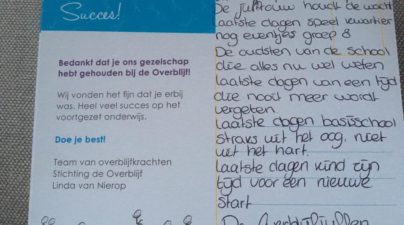 Succes!
Bedankt dat je ons gezelschap
hebt gehouden bij de Overblijf!
Wij vonden het fijn dat je erbij
was. Heel veel succes op het
voortgezet onderwijs.
Doe je best!
Team van overblijfkrachten
Stichting de Overblijf
Linda van Nierop
De juffrouw houdt de wacht
laatste dagen speelkwartier
nog eventjes groep 8
De oudsten van de school
die alles nu wel weten
laatste dagen van een tijd
die nooit meer wordt
vergeten
laatste dagen basisschool
straks uit het oog, niet
uit het hart
laatste dagen kind zijn
tijd voor een nieuwe
start
De Overblijfjuffen